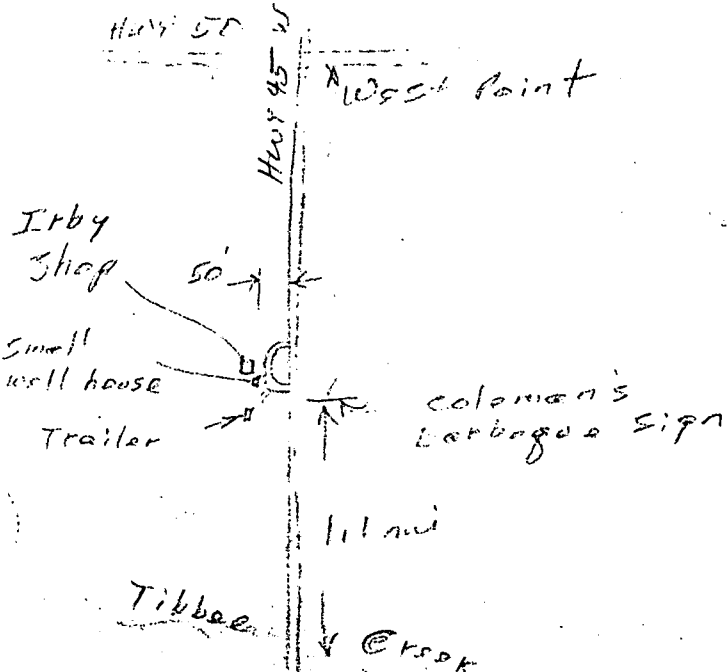 Hwy 50
Hwy 45 W
West Point
Irby
Shop
50'
Small
well house
Trailer
Coleman's
Barbeque Sign
1.1 mi
Tibbee Creek